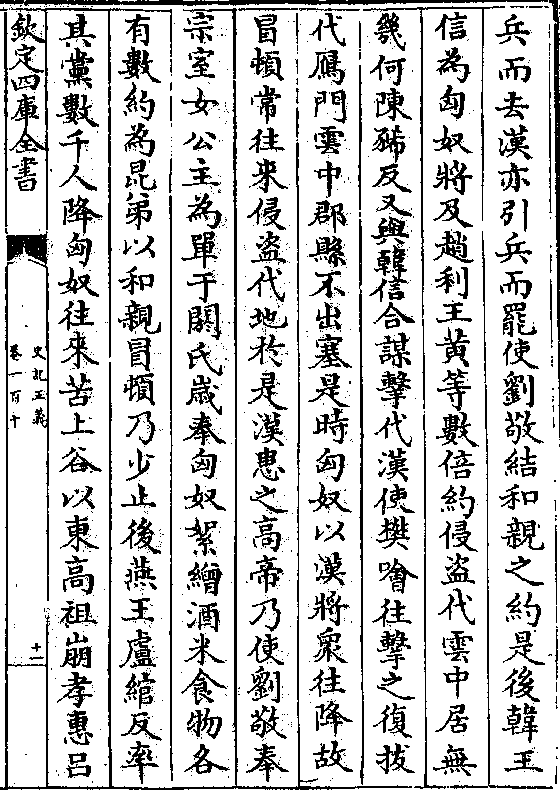 兵而去漢亦引兵而罷使劉敬結和親之約是後韓王
信為匈奴將及趙利王黃等數倍約侵盜代雲中居無
幾何陳豨反又與韓信合謀擊代漢使樊噲往擊之復拔
代鴈門雲中郡縣不出塞是時匈奴以漢將衆往降故
冒頓常往來侵盜代地於是漢患之高帝乃使劉敬奉
宗室女公主為單于閼氏歲奉匈奴絮繒酒米食物各
有數約為昆弟以和親冒頓乃少止後燕王盧綰反率
其黨數千人降匈奴往來苦上谷以東高祖崩孝惠呂
欽定四庫全書
史記正義
卷一百十
十一